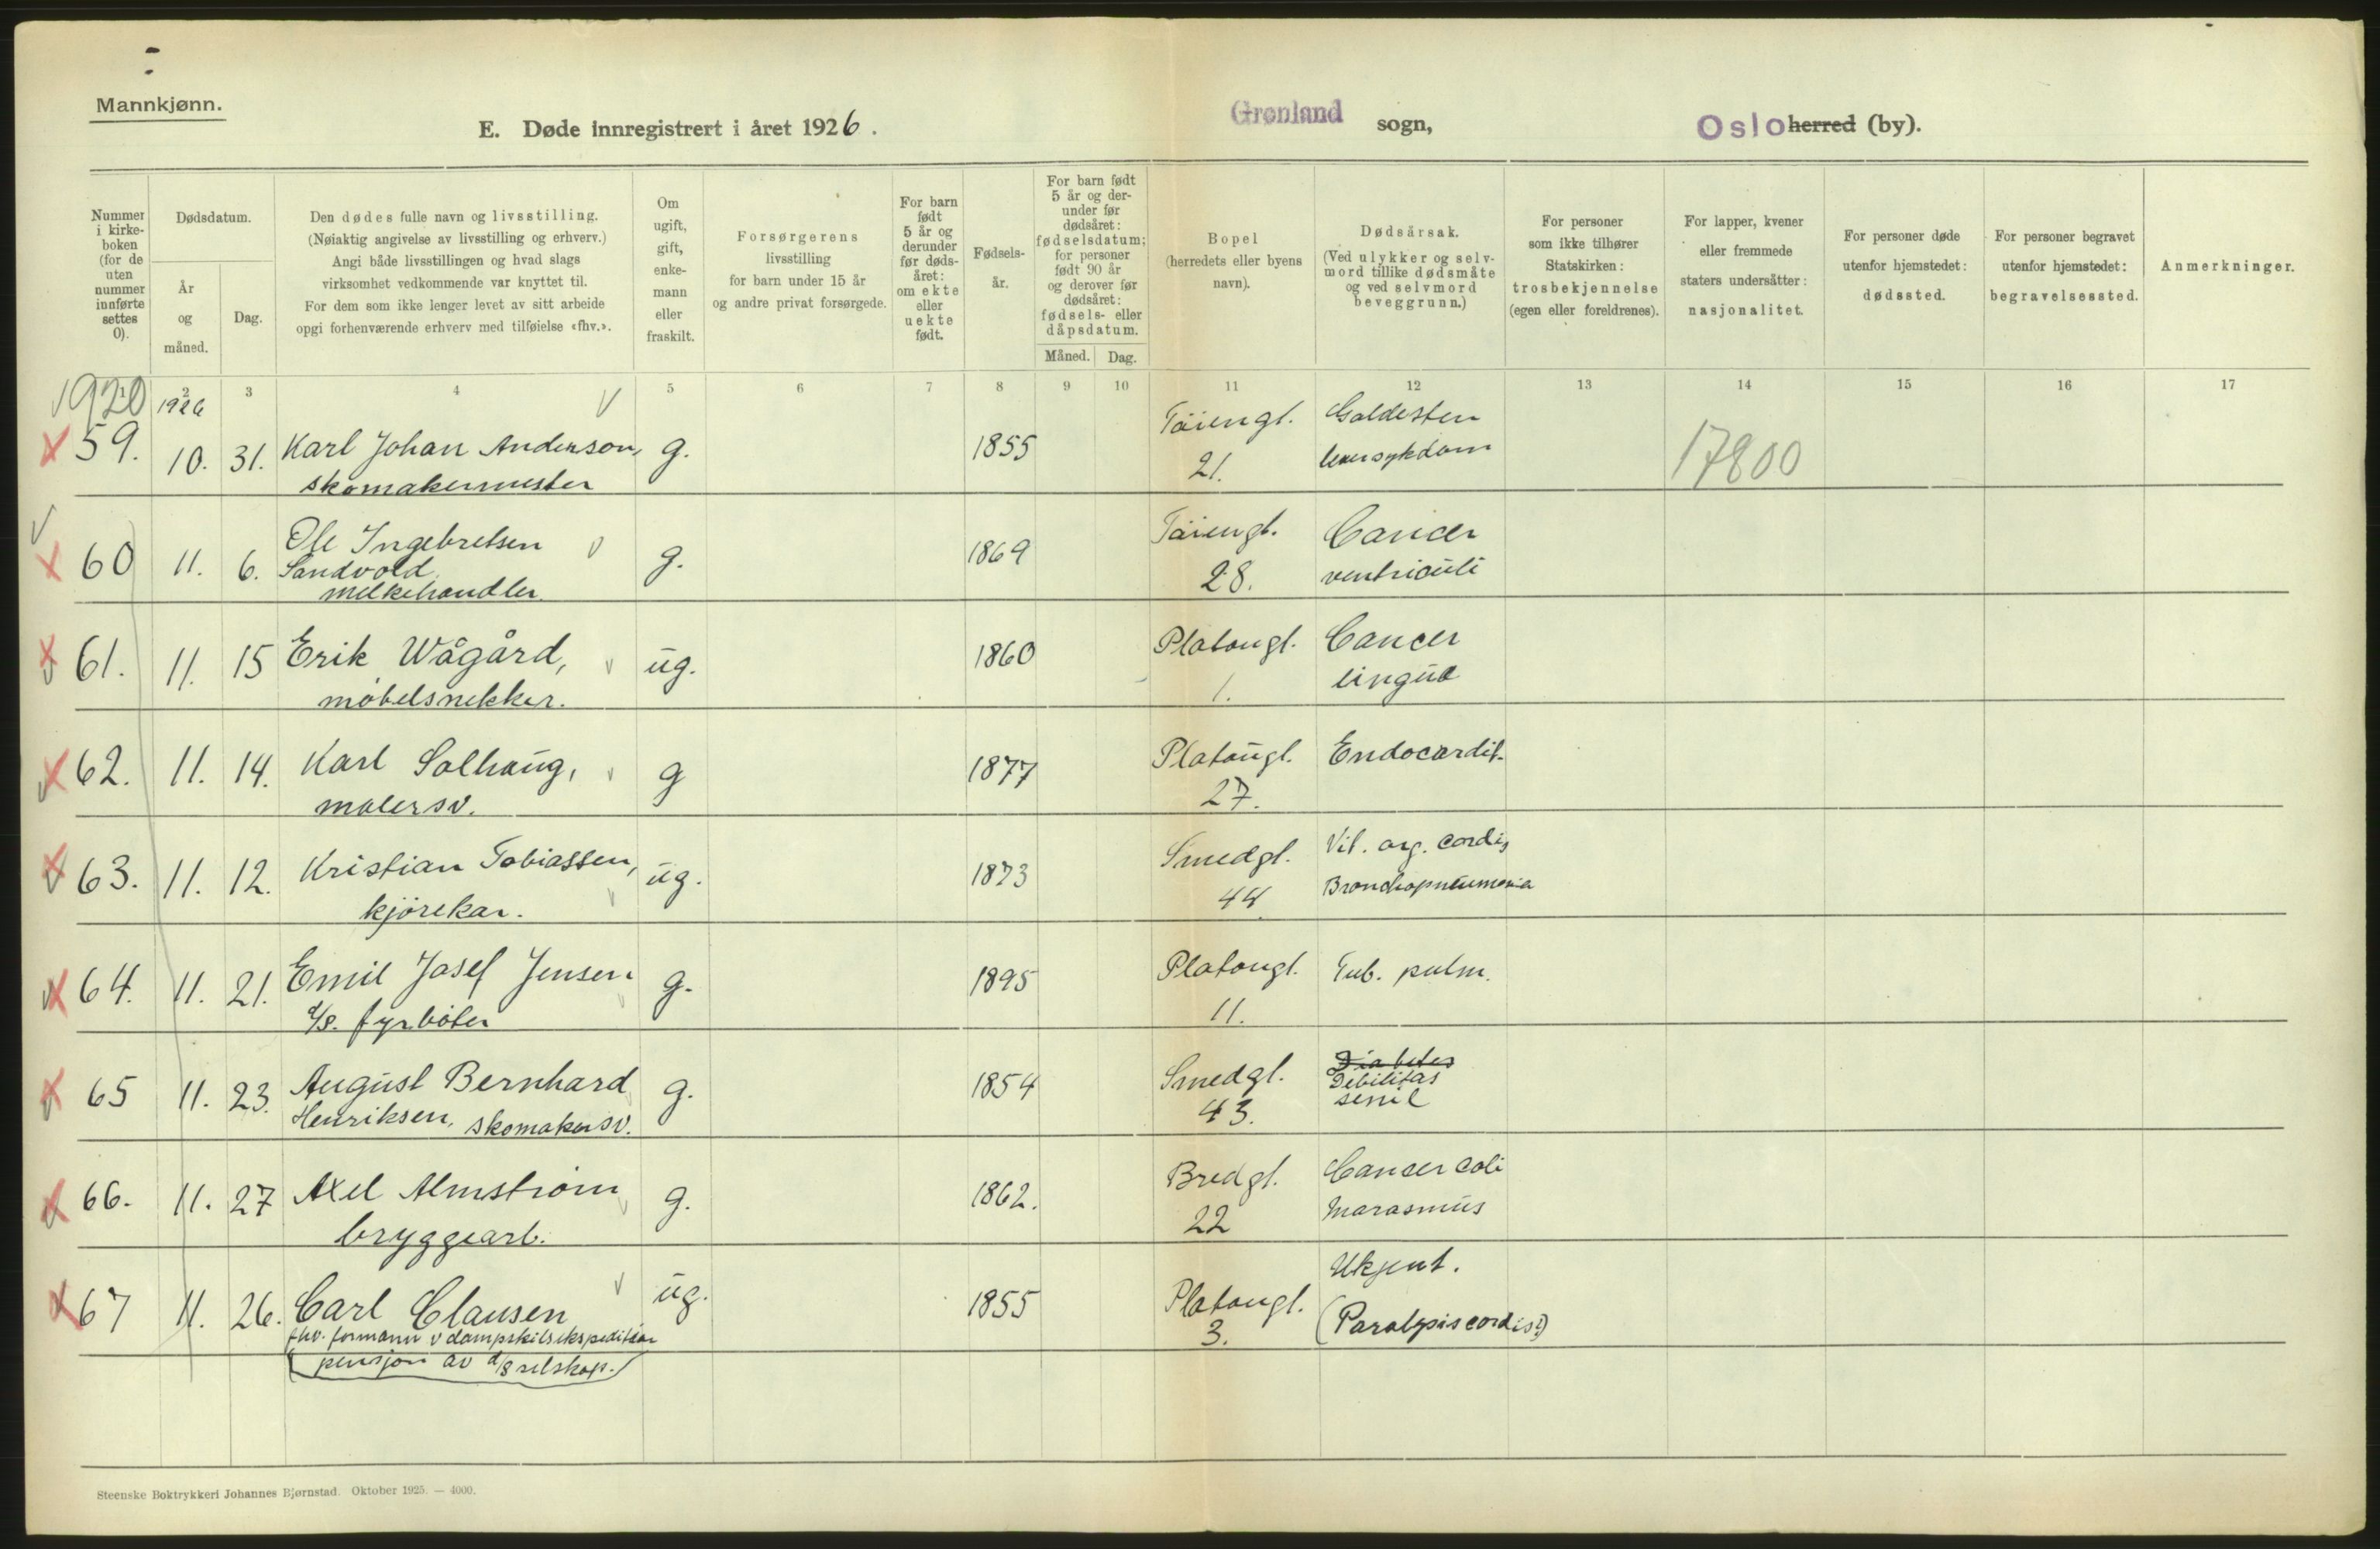 Mannkjønn.
E. Døde innregistrert i året 1926.
Grønland sogn,
Oslo herred (by).
Nummer i kirke-boken (for de uten nummer innførte settes 0).
Dødsdatum.
År og måned.
Dag.
Den dødes fulle navn og livsstilling.
(Nøiaktig angivelse av livsstilling og erhverv.)
Angi både livsstillingen og hvad slags
virksomhet vedkommende var knyttet til.
For dem som ikke lenger levet av sitt arbeide
opgi forhenværende erhverv med tilføielse «fhv.».
Om ugift, gift, enke-mann eller fraskilt.
Forsørgerens
livsstilling
for barn under 15 år
og andre privat forsørgede.
For barn født 5 år og derunder før døds-året: om ekte eller uekte født.
Fødsels-år.
For barn født 5 år og der-under før dødsåret: fødselsdatum; for personer født 90 år og derover før dødsåret: fødsels- eller dåpsdatum.
Måned.
Dag.
Bopel
(herredets eller byens
navn).
Dødsårsak.
(Ved ulykker og selv-
mord tillike dødsmåte
og ved selvmord
beveggrunn.)
For personer
som ikke tilhører
Statskirken:
trosbekjennelse
(egen eller foreldrenes).
For lapper, kvener
eller fremmede
staters undersåtter:
nasjonalitet.
For personer døde
utenfor hjemstedet:
dødssted.
For personer begravet
utenfor hjemstedet:
begravelsessted.
Anmerkninger.
1 2 3 4 5 6 7 8 9 10 11 12 13 14 15 16 17
1920 1926
59. 10. 31. Karl Johan Anderson, g. 1855 Töiengt. Galdesten
skomakermester 21. leversykdom 17800
60 11. 6. Ole Ingebretsen g. 1869 Töiengt. Cancer
Sandvold 28. ventriculi
melkehandler.
61. 11. 15 Erik Wågård, ug. 1860 Platougt. Cancer
möbelsnekker. 1. lingua
62. 11. 14. Karl Solhaug, g 1877 Platougt. Endocardit.
malersv. 27.
63. 11. 12. Kristian Tobiassen, ug. 1873 Smedgt. Vit. org. cordis
kjörekar. 44. Bronchopneumonia
64. 11. 21. Emil Josef Jensen g. 1895 Platougt. Tub. pulm.
d/s. fyrböter 11.
65 11. 23. August Bernhard g. 1854 Smedgt. Diabetes
Henriksen, skomakersv. 43. Debilitas
senil
66. 11. 27 Axel Almström g. 1862. Bredgt. Cancer coli
bryggearb. 22 Marasmus
67 11. 26. Carl Clausen ug. 1855 Platougt. Ukjent.
fhv. formann v dampskibsekspedition 3. (Paralysis cordis?)
(pensjon av d/s selskap.)
Steenske Boktrykkeri Johannes Bjørnstad. Oktober 1925. — 4000.